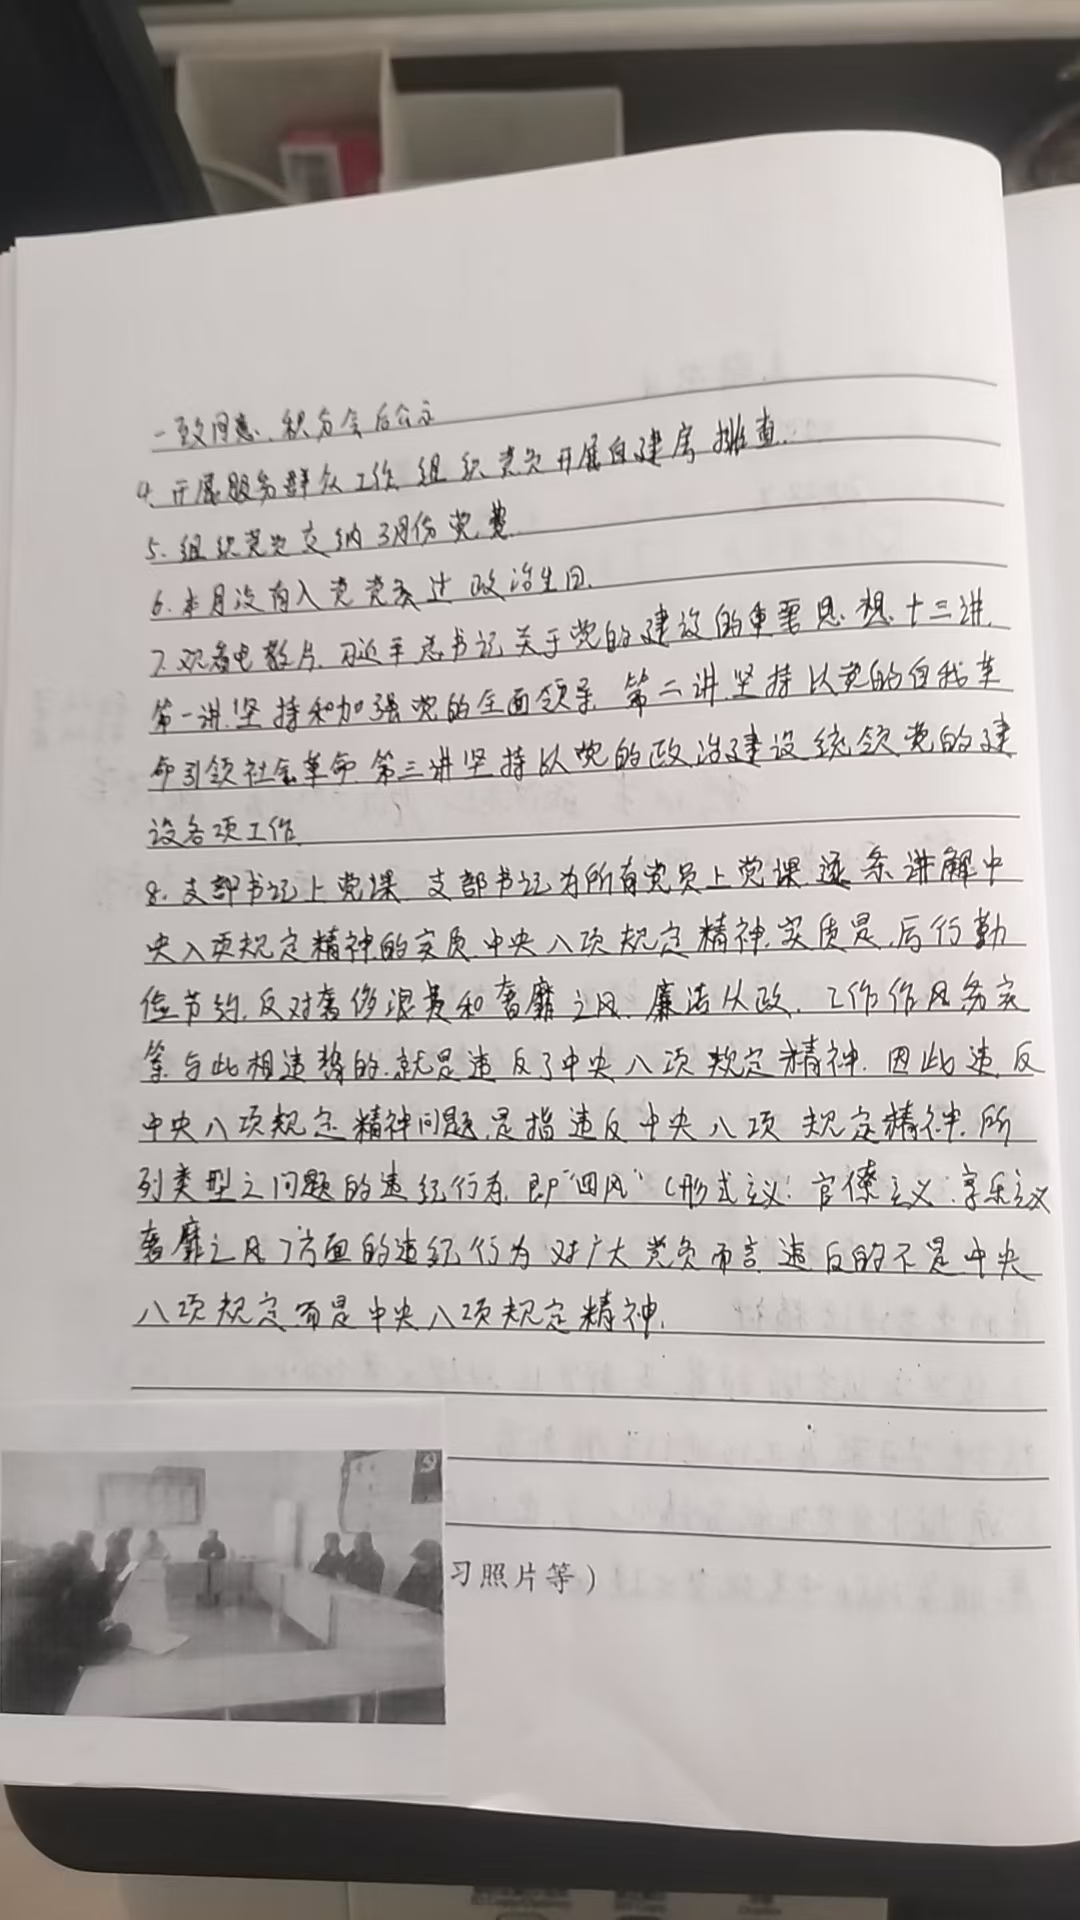 一致同意、积分会后公示
4、开展服务群众工作 组织党员开展自建房排查.
5. 组织党员交纳3月份党费.
6. 本月没有入党党员过政治生日.
7. 观看电教片, 习近平总书记关于党的建设的重要思想十三讲.
第一讲坚持和加强党的全面领导 第二讲坚持以党的自我革
命引领社会革命 第三讲坚持以党的政治建设统领党的建
设各项工作
8. 支部书记上党课 支部书记为所有党员上党课 逐条讲解中
央八项规定精神的实质.中央八项规定精神.实质是,厉行勤
俭节约,反对奢侈浪费和奢靡之风、廉洁从政, 工作作风务实
等与此相违背的.就是违反了中央八项规定精神. 因此违反
中央八项规定精神问题,是指违反中央八项规定精神.所
列类型之问题的违纪行为, 即"四风"(形式主义: 官僚主义: 享乐主义
奢靡之风)方面的违纪行为 对广大党员而言 违反的不是中央
八项规定 而是中央八项规定精神.
习照片等）